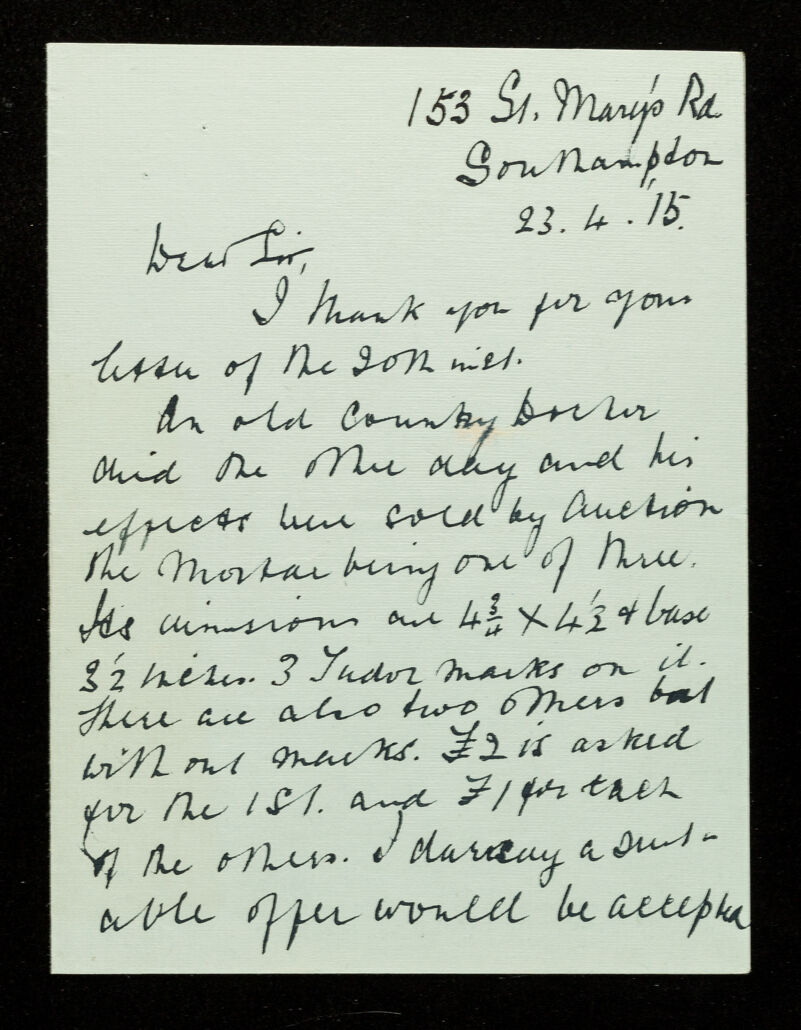 153 St. Mary's Rd.
Southampton
23.4.'15.
Dear Sir,
I thank you for your
letter of the 20th inst.
An old Country Doctor
died the other day and his
effects were sold by Auction
the Mortar being one of three.
Its dimensions are 4¾ x 4½ & base
3½ inches. 3 Tudor marks on it.
There are also two others but
without marks. £2 is asked
for the 1st. and £1 for each
of the others. I daresay a suit-
able offer would be accepted